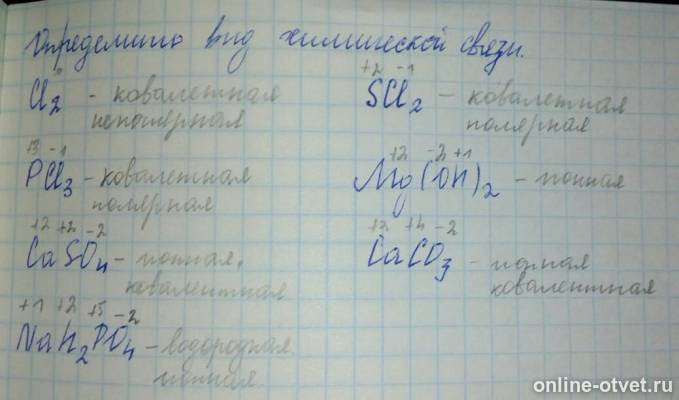 Определить вид химической связи.
0
Cl2 - ковалетная
неполярная
+2 -1
SCl2 - ковалетная
полярная
+3 -1
PCl3 - ковалетная
полярная
+2 -2 +1
Mg(OH)2 - ионная
+2 +2 -2
CaSO4 - ионная,
ковалентная
+2 +4 -2
CaCO3 - ионная
ковалентная
+1 +2 +5 -2
NaH2PO4 - водородная
ионная
online-otvet.ru